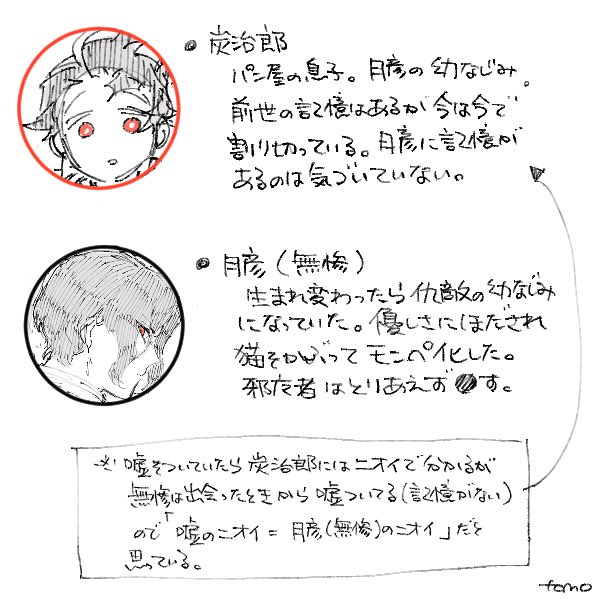 • 炭治郎
パン屋の息子。月彦の幼なじみ。
前世の記憶はあるが今は今で
割り切っている。月彦に記憶が
あるのは気づいていない。
• 月彦(無惨)
生まれ変わったら仇敵の幼なじみ
になっていた。優しさにほだされ
猫をかぶってモンペ化した。
邪魔者はとりあえず●す。
※嘘をついていたら炭治郎にはニオイで分かるが
無惨は出会ったときから嘘ついてる(記憶がない)
ので「嘘のニオイ=月彦(無惨)のニオイ」だと
思っている。
tomo